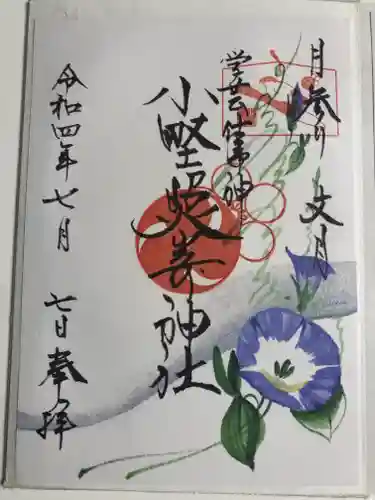 月参り 文月
学芸仕事の神
小野照崎神社
令和四年七月 七日奉拝